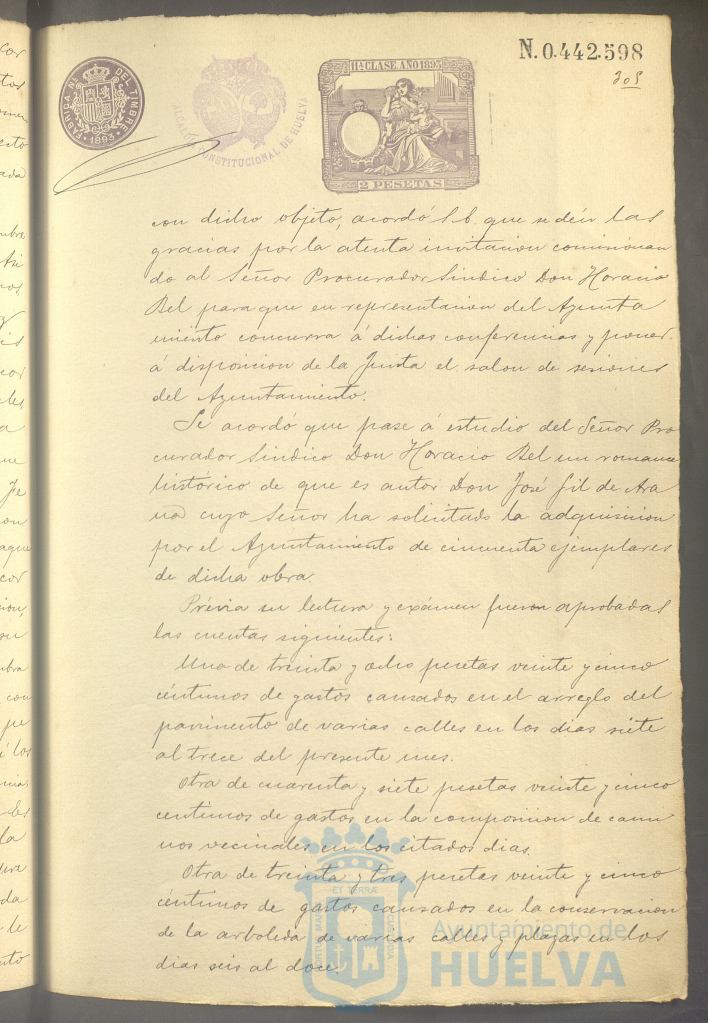 N. 0.442.598
FABRICA Nl. DEL TIMBRE
1893
ALCALDIA CONSTITUCIONAL DE HUELVA
11ª CLASE. AÑO 1893
2 PESETAS
con dicho objeto, acordó S. E. que se den las
gracias por la atenta invitacion comisionan
do al Señor Procurador Sindico Don Horacio
Bel para que en representacion del Ayunta
miento concurra á dichas conferencias y poner
á disposicion de la Junta el salon de sesiones
del Ayuntamiento.
Se acordó que pase á estudio del Señor Pro
curador Sindico Don Horacio Bel un romance
histórico de que es autor Don José Gil de Ara
cuyo Señor ha solicitado la adquisicion
por el Ayuntamiento de cincuenta ejemplares
de dicha obra.
Prévia su lectura y exámen fueron aprobadas
las cuentas siguientes:
Una de treinta y ocho pesetas veinte y cinco
céntimos de gastos causados en el arreglo del
pavimento de varias calles en los dias siete
al trece del presente mes.
Otra de cuarenta y siete pesetas veinte y cinco
centimos de gastos en la composicion de cami
nos vecinales en los citados dias.
Otra de treinta y tres pesetas veinte y cinco
céntimos de gastos causados en la conservacion
de la arboleda de varias calles y plazas en los
dias seis al doce.
Ayuntamiento de
HUELVA